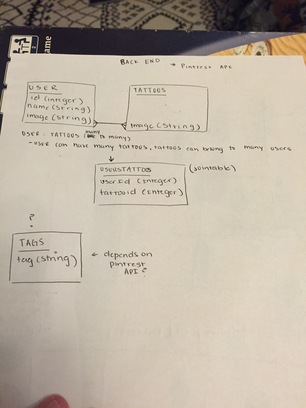 BACK END
→ Pintrest API
USER
id (integer)
name (string)
image (string)
TATTOOS
image (string)
USER : TATTOOS (many to many)
- USER can have many tattoos, tattoos can belong to many users
USERSTATTOOS
userid (integer)
tattooid (integer)
(jointable)
?
TAGS
tag (string)
← depends on
pintrest
API?